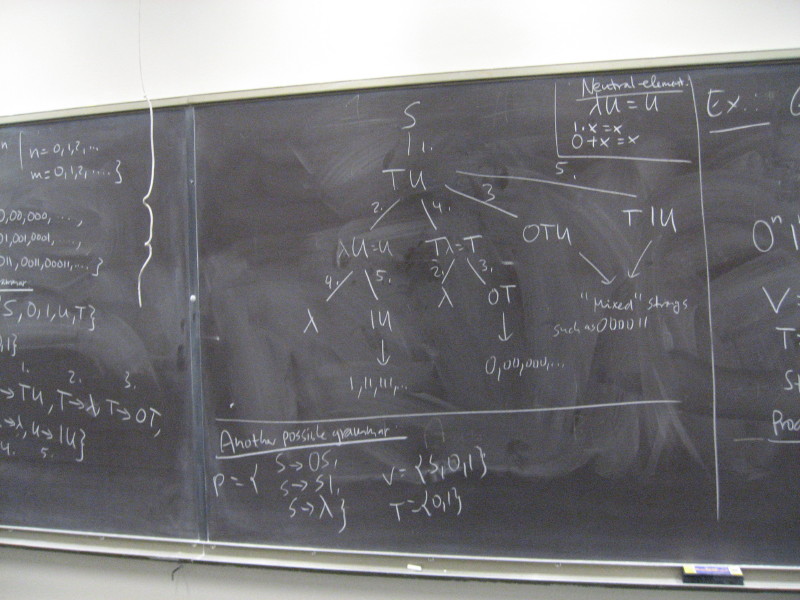 n = 0,1,2,...
m = 0,1,2,....}
0,00,000,...,
01,001,0001,...,
011,0011,00011,...}
S,0,1,U,T}
1}
1. 2. 3.
→TU, T→λ, T→0T,
→λ, U→1U}
4. 5.
S
1.
TU
2. 4. 3 5.
λU=U Tλ=T 0TU T1U
4. 5. 2. 3.
λ 1U λ 0T
"Mixed" strings
such as 000011
1,11,111,... 0,00,000,...
Neutral element:
λU = U
1·x = x
0+x = x
Another possible grammar
P = { S→0S,
S→S1,
S→λ}
V = {S,0,1}
T = {0,1}
Ex.:
0ⁿ1
V =
T =
S→
Prod